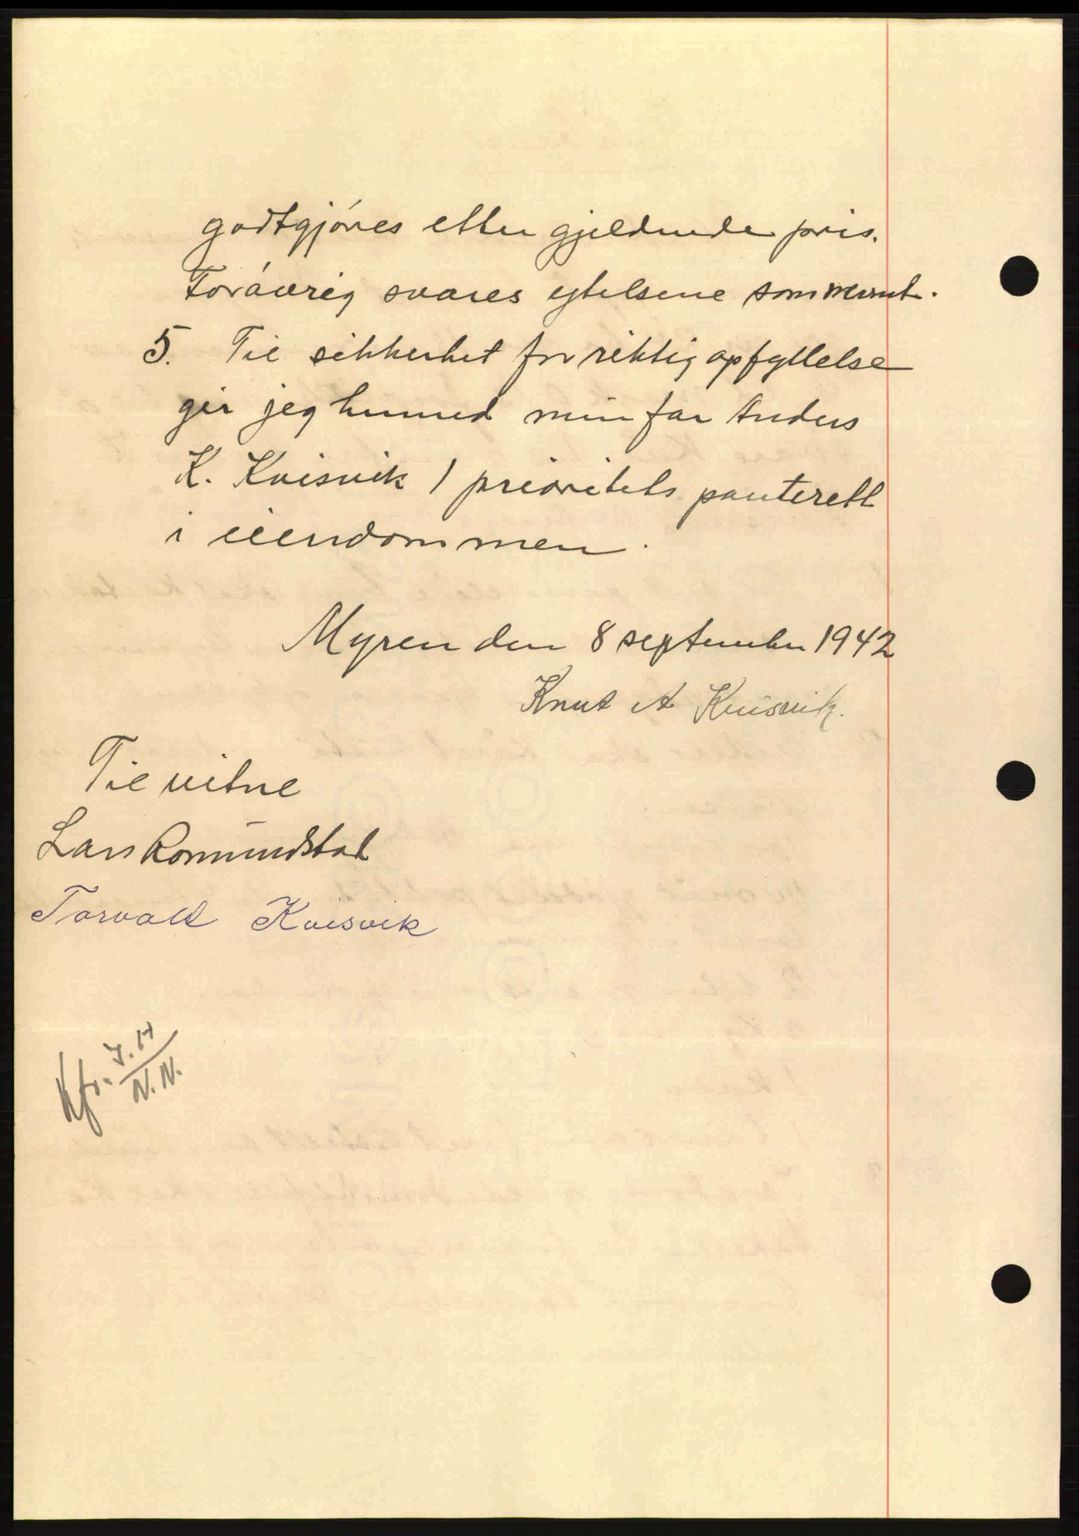 godtgjöres etter gjeldende pris.
Foráverig svares ytelsene som nevnt.
5. Til sikkerhet for riktig opfyllelse
gir jeg hermed min far Anders
K. Kvisvik 1 prioritets panterett
i eiendommen.
Myren den 8 september 1942
Knut A Kvisvik.
Til vitne
Lars Romundstad
Torvald Kvisvik
Kfr. J.H
N.N.